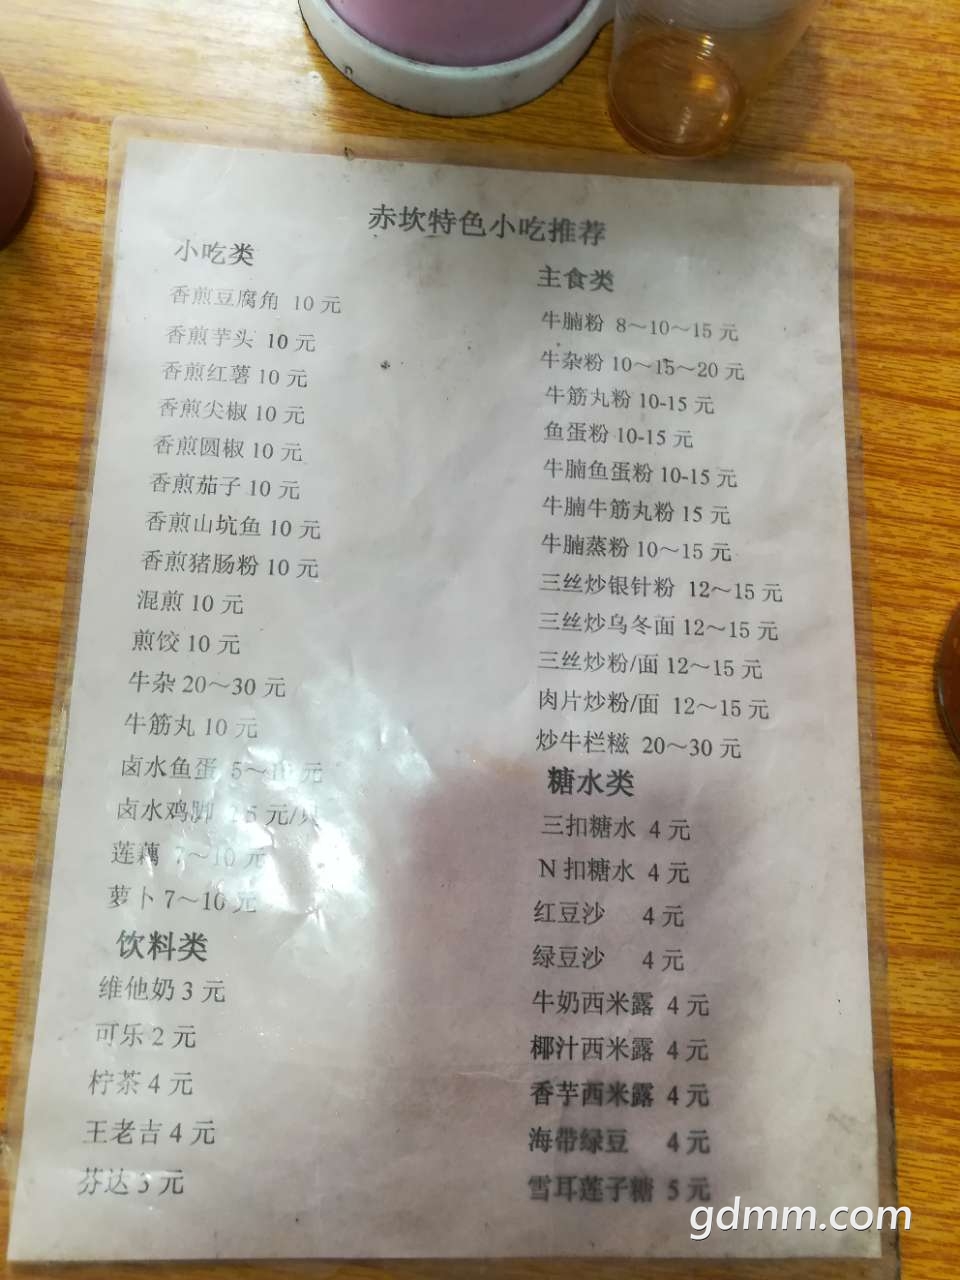 赤坎特色小吃推荐
小吃类
香煎豆腐角 10 元
香煎芋头 10 元
香煎红薯 10 元
香煎尖椒 10 元
香煎圆椒 10 元
香煎茄子 10 元
香煎山坑鱼 10 元
香煎猪肠粉 10 元
混煎 10 元
煎饺 10 元
牛杂 20～30 元
牛筋丸 10 元
卤水鱼蛋 5～10 元
卤水鸡脚 2.5 元/只
莲藕 7～10 元
萝卜 7～10 元
饮料类
维他奶 3 元
可乐 2 元
柠茶 4 元
王老吉 4 元
芬达 3 元
主食类
牛腩粉 8～10～15 元
牛杂粉 10～15～20 元
牛筋丸粉 10-15 元
鱼蛋粉 10-15 元
牛腩鱼蛋粉 10-15 元
牛腩牛筋丸粉 15 元
牛腩蒸粉 10～15 元
三丝炒银针粉 12～15 元
三丝炒乌冬面 12～15 元
三丝炒粉/面 12～15 元
肉片炒粉/面 12～15 元
炒牛栏糍 20～30 元
糖水类
三扣糖水 4 元
N 扣糖水 4 元
红豆沙 4 元
绿豆沙 4 元
牛奶西米露 4 元
椰汁西米露 4 元
香芋西米露 4 元
海带绿豆 4 元
雪耳莲子糖 5 元
gdmm.com